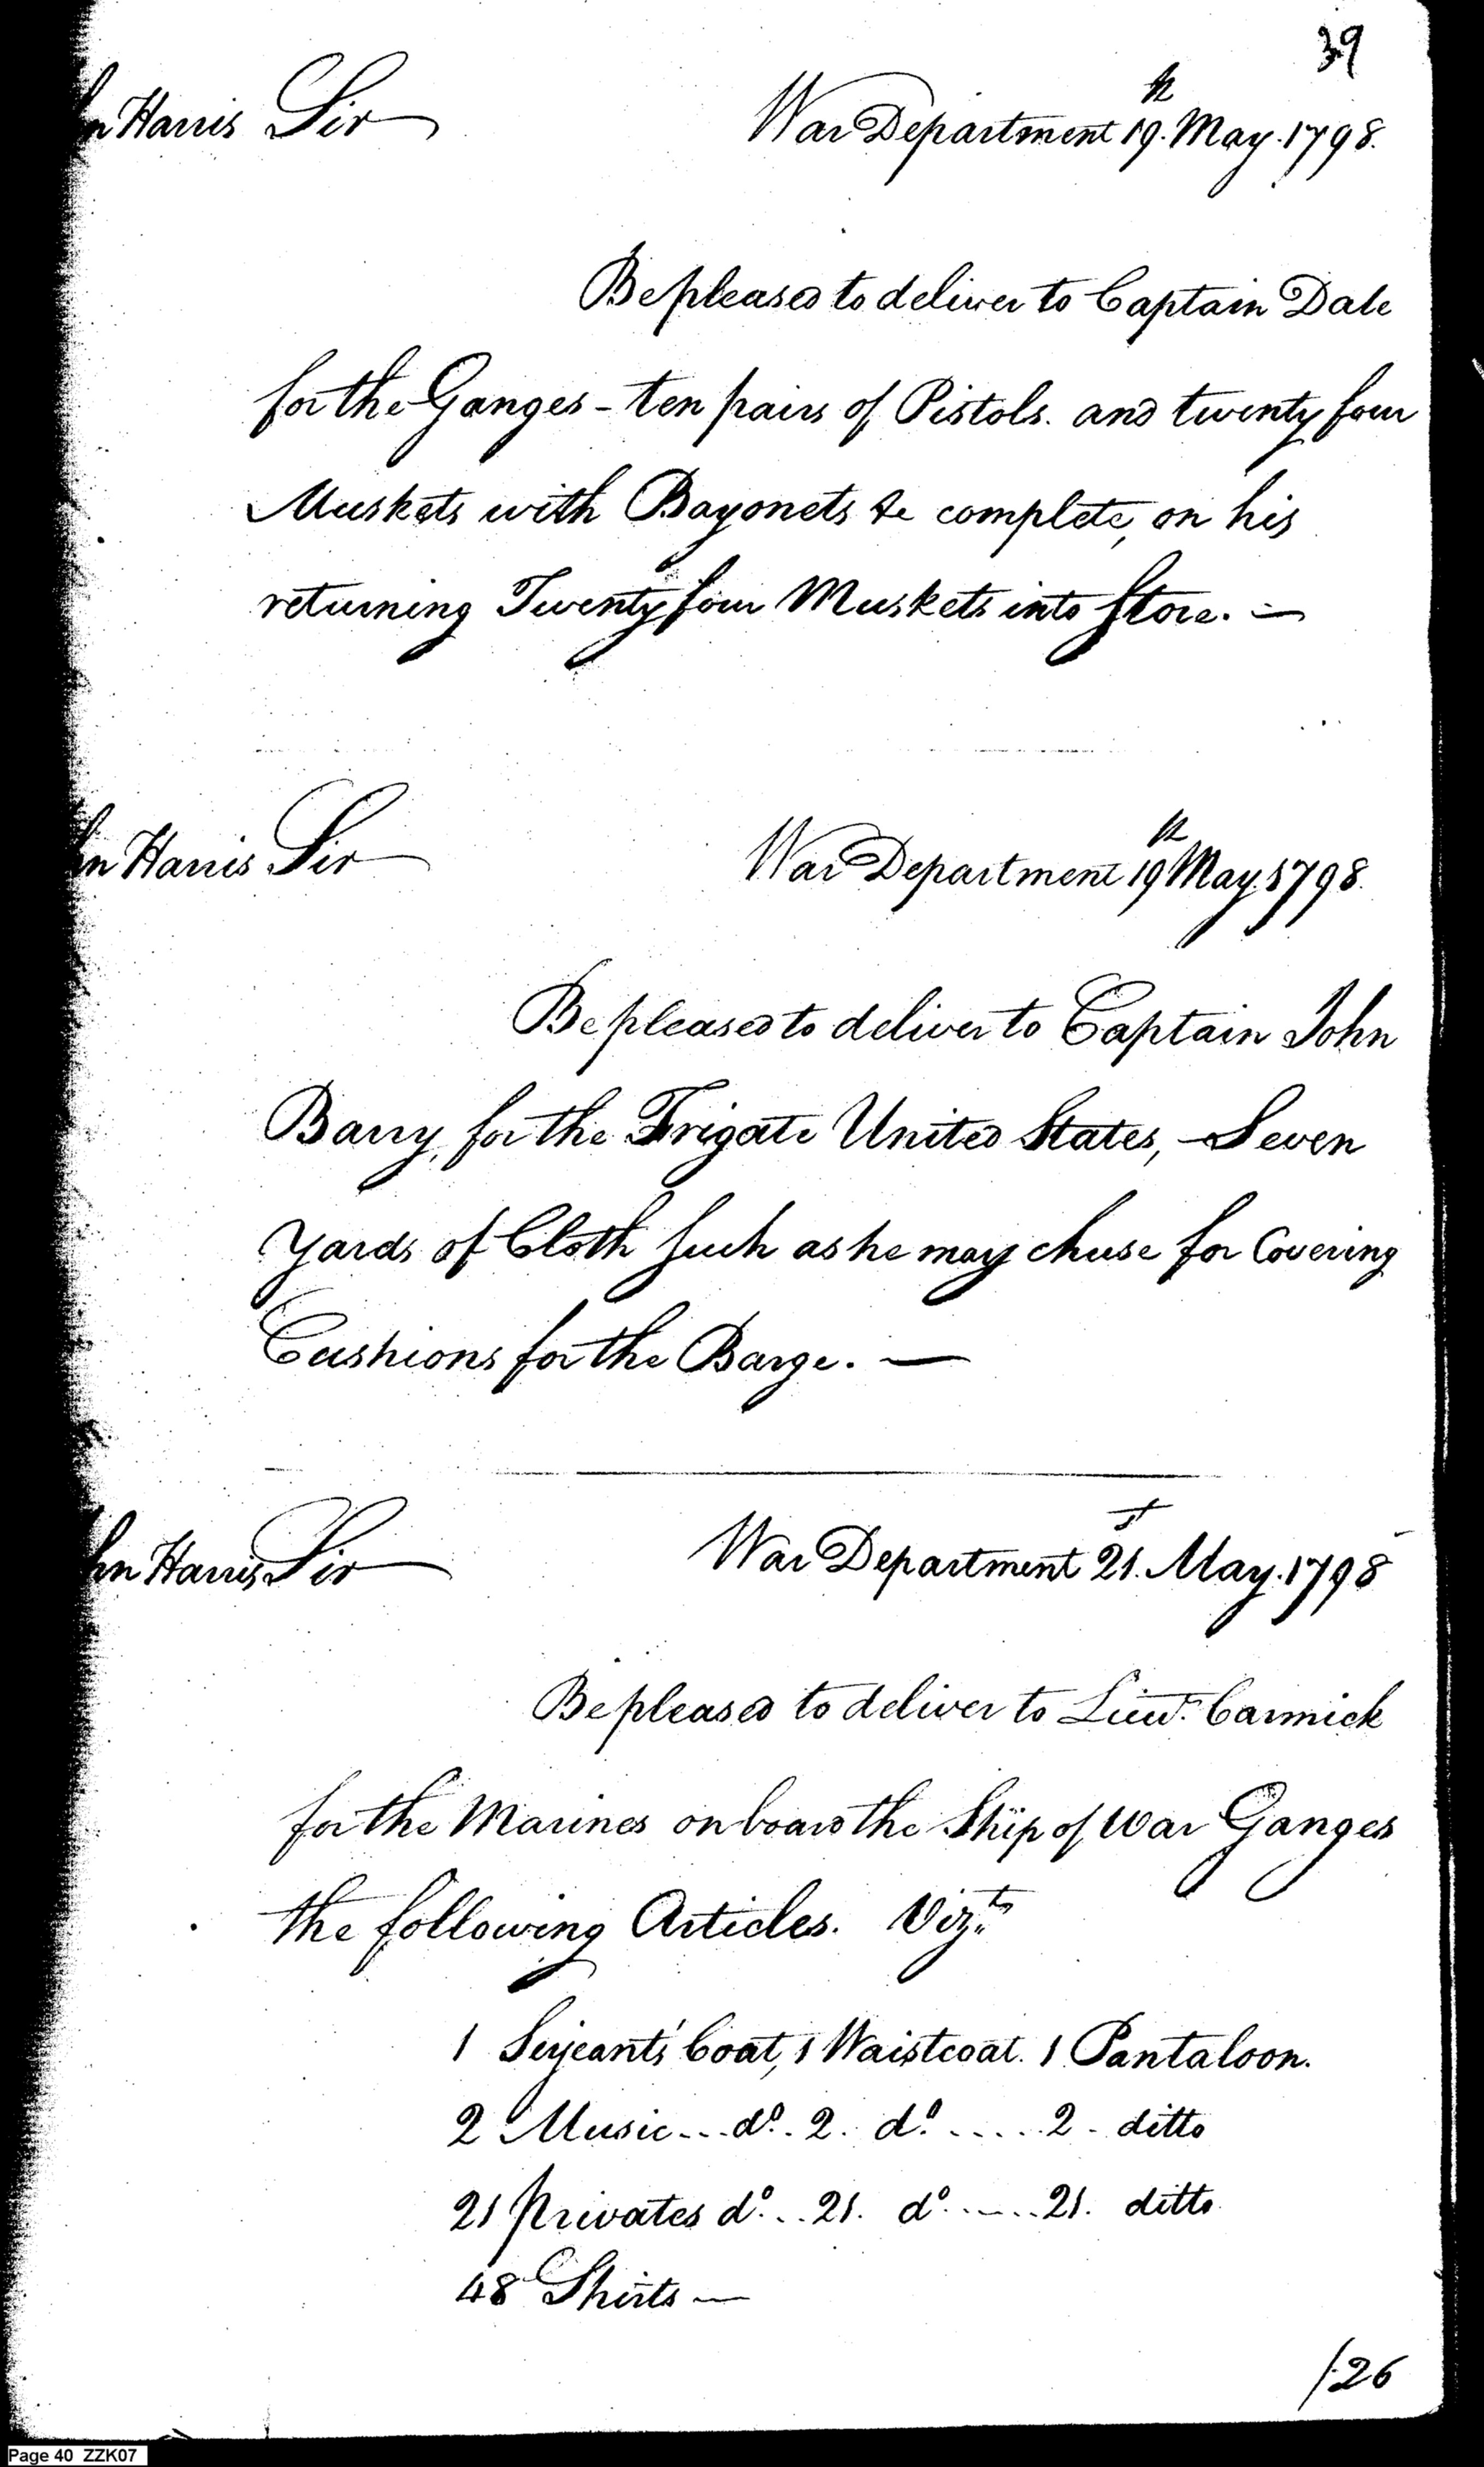 39
hn Harris Sir War Department 19th May. 1798.
Be pleased to deliver to Captain Dale
for the Ganges - ten pairs of Pistols. and twenty four
Muskets with Bayonets &c complete, on his
returning Twenty four Muskets into Store. —
hn Harris Sir War Department 19th May 1798.
Be pleased to deliver to Captain John
Barry, for the Frigate United States, – Seven
Yards of Cloth such as he may chuse for Covering
Cushions for the Barge. —
hn Harris Sir War Department 21st. May. 1798
Be pleased to deliver to Lieut. Carmick
for the Marines on board the Ship of War Ganges
the following Articles. Vizt.
1 Serjeant's Coat, 1 Waistcoat. 1 Pantaloon.
2 Music... do. 2. do. ..... 2 - ditto
21 Privates do... 21. do. ..... 21. ditto
48 Shirts —
/26
Page 40 ZZK07